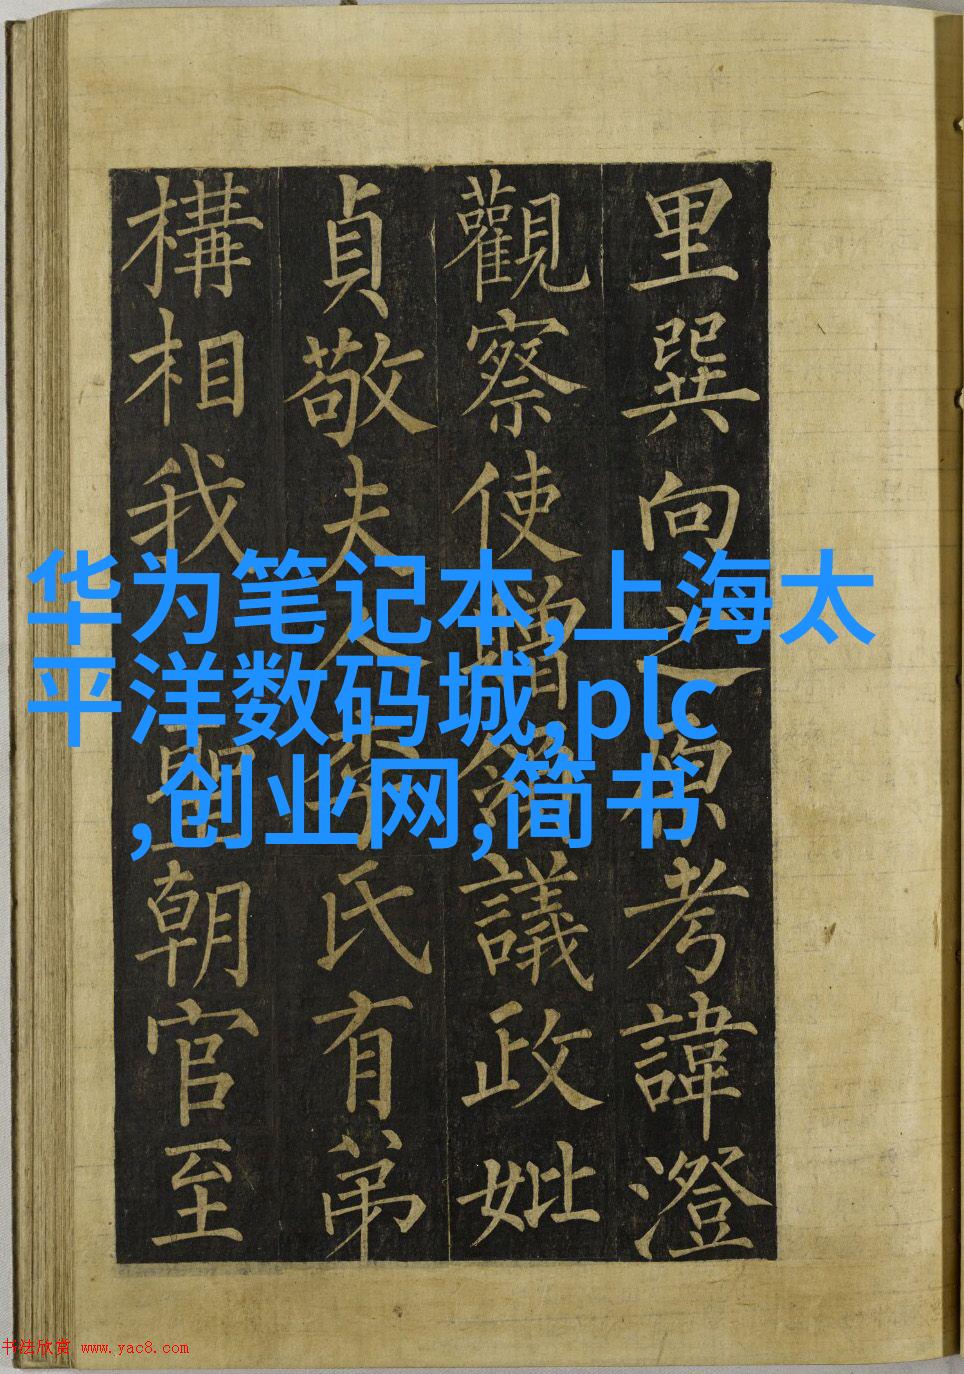 里巽向之原考諱澄
觀察使贈領議政妣
貞敬夫人李氏有弟
構相我聖朝官至
华为笔记本,上海太
平洋数码城,plc
,创业网,简书
书法欣赏 www.yac8.com